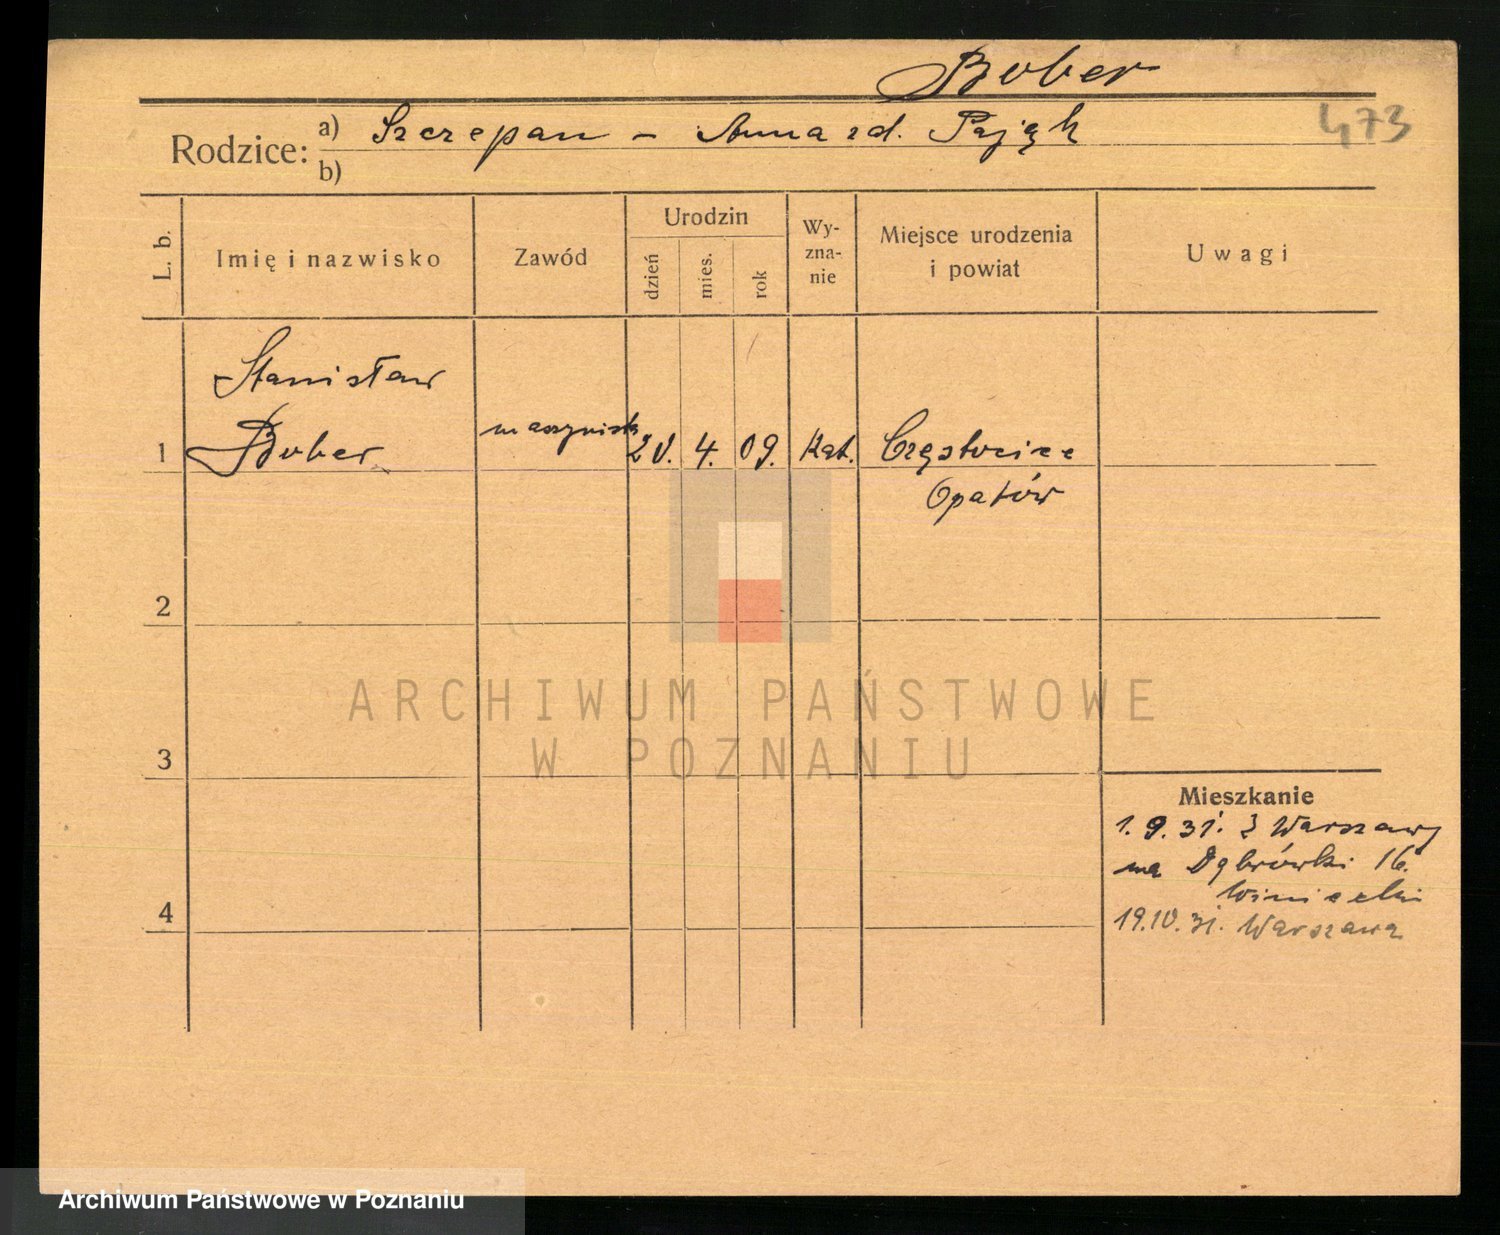 Bober
473
Rodzice: a) Szczepan – Anna zd. Pająk
b)
L. b. Imię i nazwisko Zawód Urodzin dzień mies. rok Wyznanie Miejsce urodzenia i powiat Uwagi
Stanisław
1 Bober maszynista 20. 4. 09. Kat. Częstocice
Opatów
2
ARCHIWUM PAŃSTWOWE
W POZNANIU
3
Mieszkanie
1. 9. 31. z Warszawy
na Dąbrówki 16.
Winiecki
4
19.10.31. Warszawa
Archiwum Państwowe w Poznaniu